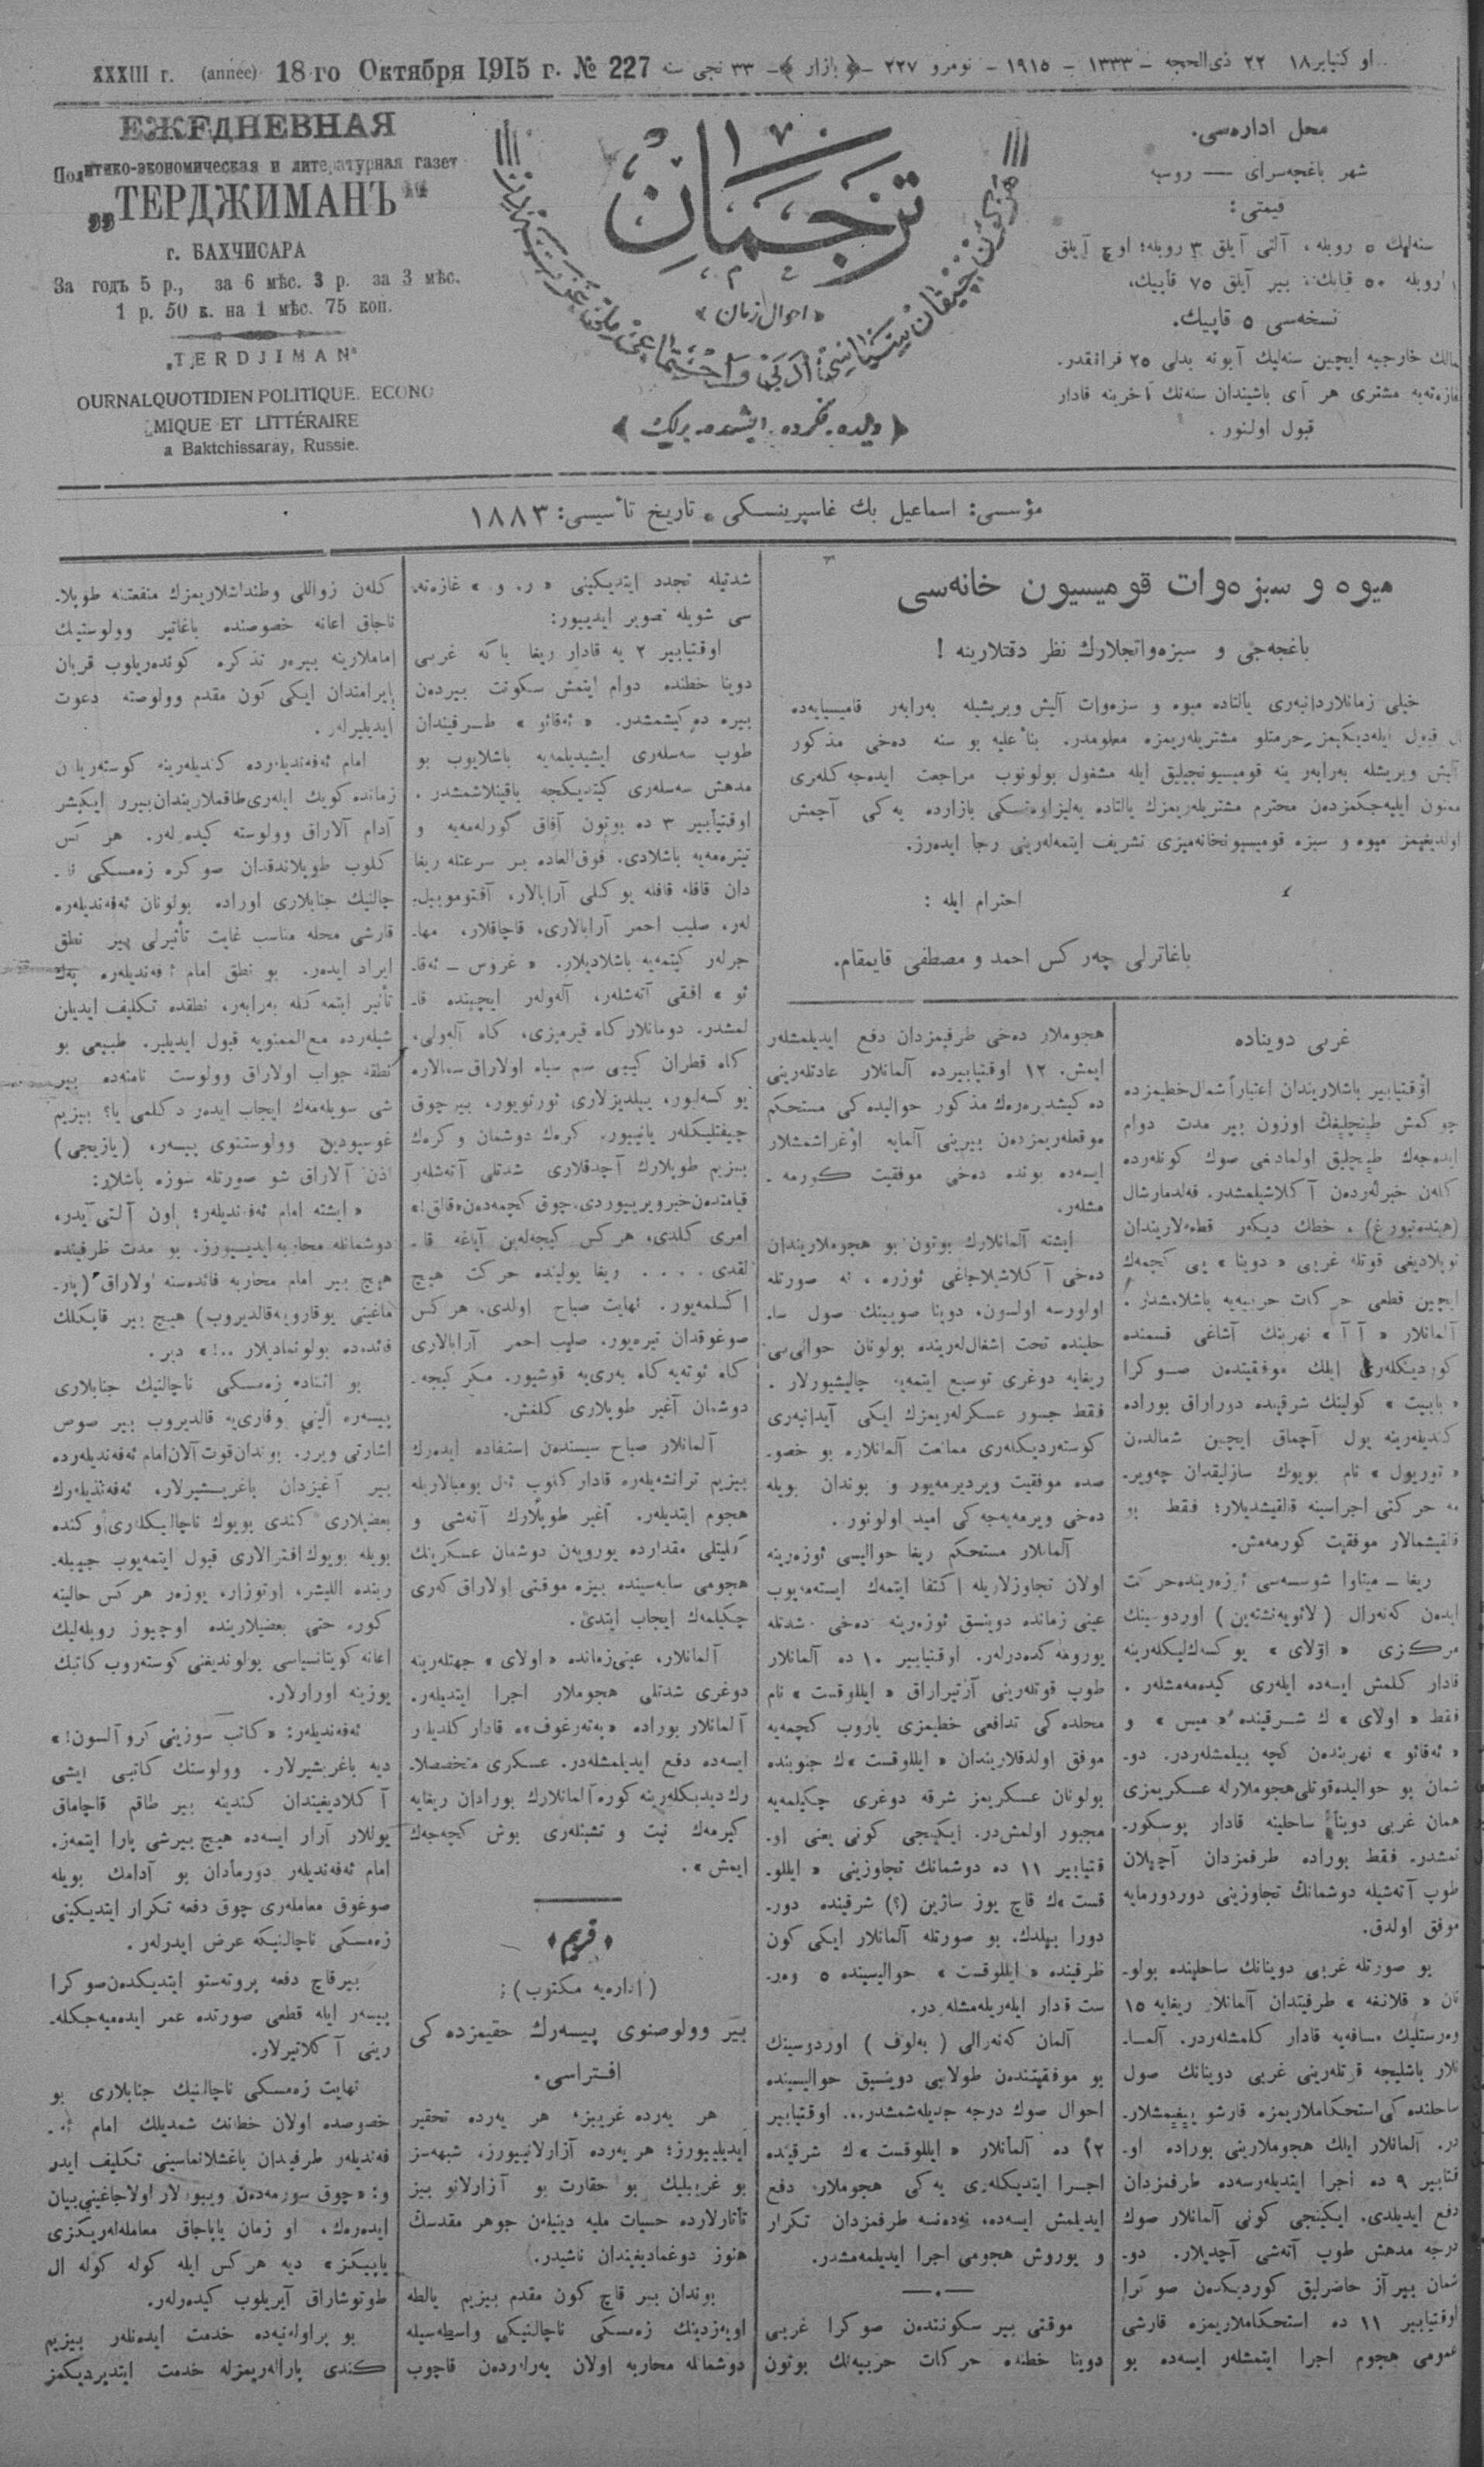 XXXIII г. (année) 18-го Октября 1915 г. № 227
او كتیابر ۱۸ ۲۲ ذی‌الحجه – ۱۳۳۳ – ۱۹۱۵ – نومرو ۲۲۷ –﴿ بازار ﴾– ۳۳ نجی سنه
ЕЖЕДНЕВНАЯ
Политико-экономическая и литературная газет
„ТЕРДЖИМАНЪ"
г. БАХЧИСАРА
За годъ 5 р., за 6 мѣс. 3 р. за 3 мѣс.
1 р. 50 к. на 1 мѣс. 75 коп.
„TERDJIMAN"
OURNALQUOTIDIEN POLITIQUE. ECONO
MIQUE ET LITTÉRAIRE
a Baktchissaray, Russie.
ترجمان
« احوال زمان »
﴿ دیلده، فكرده، ایشده بریلك ﴾
محل اداره‌سی.
شهر باغچه‌سرای — روسیه
قیمتی:
سنه‌لیك ٥ روبله، آلتی آیلق ۳ روبله؛ اوچ آیلق
۱ روبله ٥۰ قاپیك، بیر آیلق ۷٥ قاپیك،
نسخه‌سی ٥ قاپیك.
ممالك خارجیه ایچین سنه‌لیك آبونه بدلی ۲٥ فرانقدر.
غازه‌ته‌یه مشتری هر آی باشیندان سنه‌نك آخرینه قادار
قبول اولنور.
مؤسسی: اسماعیل بك غاسپرینسكی * تاریخ تأسیسی: ۱۸۸۳
میوه و سبزه‌وات قومیسیون خانه‌سی
باغچه‌جی و سبزه‌واتجلارك نظر دقتلارینه !
خیلی زمانلاردانبه‌ری یالتاده میوه و سبزه‌وات آلیش ویریشیله به‌رابه‌ر قامیسیایه‌ده
مال قبول ایله‌دیكیمز حرمتلو مشتریله‌ریمزه معلومدر. بناً علیه بو سنه ده‌خی مذكور
آلیش ویریشله به‌رابه‌ر ینه قومیسیونجیلیق ایله مشغول بولونوب مراجعت ایده‌جه‌كله‌ری
ممنون ایلیه‌جكمزدن محترم مشتریله‌ریمزك یالتاده یه‌لیزاوه‌تسكی بازارده یه‌كی آچمش
اولدیغیمز میوه و سبزه قومیسیونخانه‌میزی تشریف ایتمه‌له‌رینی رجا ایده‌رز.
احترام ایله :
باغاترلی چه‌ركس احمد و مصطفی قایمقام.
غربی دویناده
اوقتیابیر باشلاریندان اعتباراً شمال خطیمزده
چوكمش طینچلیقك اوزون بیر مدت دوام
ایده‌جه‌ك طینچلیق اولمادیغی صوك كونله‌رده
كلن خبرله‌ردن آكلاشیلمشدر. فه‌لدمارشال
(هینده‌نبورغ)، خطك دیكه‌ر قطعه‌لاریندان
توپلادیغی قوتله غربی « دوینا » یی كچمه‌ك
ایچین قطعی حركات حربیه‌یه باشلامشدر.
آلمانلار « آ آ » نهرینك آشاغی قسمنده
كوردیكله‌ری ایلك موفقیتدن صوكرا
« بابیت » كولینك شرقینده دوراراق بوراده
كندیله‌رینه یول آچماق ایچین شمالدن
قالقیشمالار موفقیت كورمه‌مش.
ریغا – میتاوا شوسسه‌سی ئوزه‌رینده حركت
مركزی « اولای » یوكسه‌كلیكله‌رینه
قادار كلمش ایسه‌ده ایله‌ری كیده‌مه‌مشله‌ر.
فقط « اولای » ك شرقینده « میس » و
« ئه‌قائو » نهرینده‌ن كچه بیلمشله‌ردر. دو-
شمان بو حوالیده قوتلی هجوملارله عسكریمزی
همان غربی دوینا ساحلینه قادار پوسكور-
تمشدر. فقط بوراده طرفمزدان آچیلان
طوپ آته‌شیله دوشمانك تجاوزینی دوردورمایه
موفق اولدق.
بو صورتله غربی دوینانك ساحلینده بولو-
نان « قلانغه » طرفیندان آلمانلار ریغایه ۱٥
وه‌رستلیك مسافه‌یه قادار كلمشله‌ردر. آلما-
نلار باشلیجه قوتله‌رینی غربی دوینانك صول
ساحلنده‌كی استحكاملاریمزه قارشو ییغیمشلار-
در. آلمانلار ایلك هجوملارینی بوراده او-
قتیابیر ۹ ده اجرا ایتدیله‌رسه‌ده طرفمزدان
دفع ایدیلدی. ایكینجی كونی آلمانلار صوك
درجه مدهش طوپ آته‌شی آچدیلار. دو-
شمان بیر آز حاضرلیق كوردیكدن صوكرا
اوقتیابیر ۱۱ ده استحكاملاریمزه قارشی
عمومی هجوم اجرا ایتمشله‌ر ایسه‌ده بو
هجوملار ده‌خی طرفیمزدان دفع ایدیلمشله‌ر
ایمش. ۱۲ اوقتیابیرده آلمانلار عادتله‌رینی
ده‌كیشدیره‌ره‌ك مذكور حوالیده‌كی مستحكم
موقعله‌ریمزدن بیرینی آلمایه اوغراشمشلار
ایسه‌ده بونده ده‌خی موفقیت كورمه-
مشله‌ر.
ایشته آلمانلارك بوتون بو هجوملاریندان
ده‌خی آكلاشیلاجاغی ئوزره، نه صورتله
اولورسه اولسون، دوینا صوینك صول سا-
حلینده تحت اشغالله‌رینده بولونان حوالی‌یی
ریغایه دوغری توسیع ایتمه‌یه چالیشیورلار.
فقط جسور عسكرله‌ریمزك ایكی آیدانبه‌ری
كوسته‌ردیكله‌ری ممانعت آلمانلاره بو خصو-
صده موفقیت ویردیرمه‌یور و بوندان بویله
ده‌خی ویرمه‌یه‌جه‌كی امید اولونور.
آلمانلار مستحكم ریغا حوالیسی ئوزه‌رینه
اولان تجاوزلاریله اكتفا ایتمه‌ك ایسته‌میوب
عینی زمانده دوینسق ئوزه‌رینه ده‌خی شدتله
یورومكده‌درله‌ر. اوقتیابیر ۱۰ ده آلمانلار
طوپ قوتله‌رینی آرتیراراق « ایللوقست » نام
محلده‌كی تدافعی خطیمزی یاروب كچمه‌یه
موفق اولدقلاریندان « ایللوقست »ك جنوبنده
بولونان عسكریمز شرقه دوغری چكیلمه‌یه
مجبور اولمش‌در. ایكینجی كونی یعنی او-
قتیابیر ۱۱ ده دوشمانك تجاوزینی « ایللو-
قست »ك قاچ یوز ساژین (؟) شرقینده دور-
دورا بیلدك. بو صورتله آلمانلار ایكی كون
ظرفینده « ایللوقست » حوالیسینده ٥ وه‌ر-
ست قدار ایله‌ریله‌مشله‌ر در.
آلمان كه‌نه‌رالی ( به‌لوف ) اوردوسینك
بو موفقیتندن طولایی دوینسق حوالیسینده
احوال صوك درجه جدیله‌شمشدر... اوقتیابیر
۱۲ ده آلمانلار « ایللوقست »ك شرقینده
اجرا ایتدیكله‌ری یه‌كی هجوملار دفع
ایدیلمش ایسه‌ده، نه‌ده‌نسه طرفمزدان تكرار
و یوروش هجومی اجرا ایدیلمه‌مشدر.
موقتی بیر سكونتدن صوكرا غربی
دوینا خطنده حركات حربیه‌نك بوتون
شدتیله تجدد ایتدیكینی « ر. و » غازه‌ته-
سی شویله تصویر ایدییور:
اوقتیابیر ۲ یه قادار ریغا یا كه غربی
دوینا خطنده دوام ایتمش سكونت بیردن
بیره ده‌كیشمشدر. « ئه‌قائو » طرفیندان
طوپ سه‌سله‌ری ایشیدیلمه‌یه باشلایوب بو
مدهش سه‌سله‌ری كیتدیكجه یاقینلاشمشدر.
اوقتیابیر ۳ ده بوتون آفاق كورله‌مه‌یه و
تیتره‌مه‌یه باشلادی. فوق‌العاده بیر سرعتله ریغا
دان قافله قافله یوكلی آرابالار، آفتوموبیل-
له‌ر، صلیب احمر آرابالاری، قاچاقلار، مها-
جرله‌ر كیتمه‌یه باشلادیلار. « غروس – ئه‌قا-
ئو » افقی آته‌شله‌ر، آله‌وله‌ر ایچینده قا-
لمشدر. دومانلار كاه قیرمیزی، كاه آله‌ولی،
كاه قطران كیبی سیم سیاه اولاراق سمالاره
یوكسه‌لیور، ییلدیزلاری ئورتویور، بیر چوق
چیفتلیكله‌ر یانیبور. كره‌ك دوشمان و كره‌ك
بیزیم طوپلارك آچدقلاری شدتلی آته‌شله‌ر
قیامتدن خبر ویریبوردی. چوق كچمه‌دن «قالق!»
امری كلدی، هركس كیجه‌له‌ین آیاغه قا-
لقدی.... ریغا یولینده حركت هیچ
اكسلمه‌یور. نهایت صباح اولدی، هركس
صوغوقدان تیره‌یور. صلیب احمر آرابالاری
كاه ئوته‌یه كاه به‌ری‌یه قوشیور. مكر كیجه
دوشمان آغیر طوپلاری كلمش.
آلمانلار صباح سیسندن استفاده ایده‌رك
بیزیم ترانشه‌یله‌ره قادار كلوب ئه‌ل بومبالاریله
هجوم ایتدیله‌ر. آغیر طوپلارك آته‌شی و
كلیتلی مقدارده یورویه‌ن دوشمان عسكرینك
هجومی سایه‌سینده بیزه موقتی اولاراق كه‌ری
چكیلمه‌ك ایجاب ایتدی.
آلمانلار، عینی زمانده « اولای » جهتله‌رینه
دوغری شدتلی هجوملار اجرا ایتدیله‌ر.
آلمانلار بوراده «په‌ته‌رغوف»ه قادار كلدیلر
ایسه‌ده دفع ایدیلمشله‌در. عسكری متخصصلا-
رك دیدیكله‌رینه كوره آلمانلارك بورادان ریغایه
كیرمه‌ك نیت و تشبثله‌ری بوش كچه‌جه‌ك
ایمش ».
« قریم »
( اداره‌یه مكتوب ):
بیر وولوصنوی پیسه‌رك حقیمزده‌كی
افتراسی.
هر یه‌رده غریبز، هر یه‌رده تحقیر
ایدیلیبیورز؛ هر یه‌رده آزارلانییورز. شبهه‌سز
بو غریبلیك بو حقارت بو آزارلانو بیز
تاتارلارده حسیات ملیه دینیلن جوهر مقدسك
هنوز دوغمادیغیندان ناشیدر.
بوندان بیر قاچ كون مقدم بیزیم یالطه
اویه‌زدینك زه‌مسكی ناچالنیكی واسطه‌سیله
دوشمانله محاربه اولان یه‌رله‌ردن قاچوب
كله‌ن زواللی وطنداشلاریمزك منفعتنه طوپلا-
ناجاق اعانه خصوصنده باغاتیر وولوستینك
اماملارینه بیره‌ر تذكره كونده‌ریلوب قربان
بایرامندان ایكی كون مقدم وولوصته دعوت
ایدیلیرله‌ر.
امام ئه‌فه‌ندیله‌رده كندیله‌رینه كوسته‌ریلن
زمانده كویك ایله‌ری طاقملاریندان بیرر ایكیشر
آدام آلاراق وولوسته كیده‌رله‌ر. هر كس
كلوب طوپلاندقدان صوكره زه‌مسكی نا-
چالنیك جنابلاری اوراده بولونان ئه‌فه‌ندیله‌ره
قارشی محله مناسب غایت تأثیرلی بیر نطق
ایراد ایده‌ر. بو نطق امام ئه‌فه‌ندیله‌ره پك
تأثیر ایتمه‌كله به‌رابه‌ر، نطقده تكلیف ایدیلن
شیله‌رده مع‌الممنونیه قبول ایدیلیر. طبیعی بو
نطقه جواب اولاراق وولوست نامنه‌ده بیر
شی سویله‌مه‌ك ایجاب ایده‌ر دكلمی یا؟ بیزیم
غوسپودین وولوستنوی پیسه‌ر، (یازیجی)
اذن آلاراق شو صورتله سوزه باشلار:
« ایشته امام ئه‌فه‌ندیله‌ر؛ اون آلتی آیدر،
دوشمانله محاربه ایدییورز. بو مدت ظرفینده
هیچ بیر امام محاربه فائده‌سنه اولاراق (پار-
ماغینی یوقارویه قالدیروب) هیچ بیر قاپیكلك
فائده‌ده بولونمادیلار ..!» دیر.
بو اثناده زه‌مسكی ناچالنیك جنابلاری
پیسه‌ره الینی یوقاری‌یه قالدیروب بیر صوص
اشارتی ویرر. بوندان قوت آلان امام ئه‌فه‌ندیله‌رده
بیر آغیزدان باغریشیرلار، ئه‌فه‌ندیله‌رك
بعضیلاری كندی بویوك ناچالنیكله‌ری اوكنده
بویله بویوك افترالاری قبول ایتمه‌یوب جیبله-
رینده اللیشر، اوتوزار، یوزه‌ر هركس حالینه
كوره حتی بعضیلارینده اوچیوز روبله‌لیك
اعانه كویتانسیاسی بولوندیغنی كوسته‌روب كاتبك
یوزینه اورارلار.
ئه‌فه‌ندیله‌ر: « كاتب سوزینی كرو آلسون! »
دیه باغریشیرلار. وولوستك كاتبی ایشی
آكلادیغیندان كندینه بیر طاقم قاچاماق
یوللار آرار ایسه‌ده هیچ بیرشی یارا ایتمه‌ز.
امام ئه‌فه‌ندیله‌ر دورمادان بو آدامك بویله
صوغوق معامله‌ری چوق دفعه تكرار ایتدیكینی
زه‌مسكی ناچالنیكه عرض ایدرله‌ر.
بیر قاچ دفعه پروته‌ستو ایتدیكدن صوكرا
پیسه‌ر ایله قطعی صورتده عمر ایده‌میه‌جكله-
رینی آكلاتیرلار.
نهایت زه‌مسكی ناچالنیك جنابلاری بو
خصوصده اولان خطانك شمدیلك امام ئه-
فه‌ندیله‌ر طرفیدان باغشلانماسینی تكلیف ایدر
ایده‌ره‌ك، او زمان یاپاجاق معامله‌له‌ریكزی
یاپیكز » دیه هركس ایله كوله كوله ال
طوتوشاراق آیریلوب كیده‌رله‌ر.
كندی پارالریمزله خدمت ایتدیردیكمز